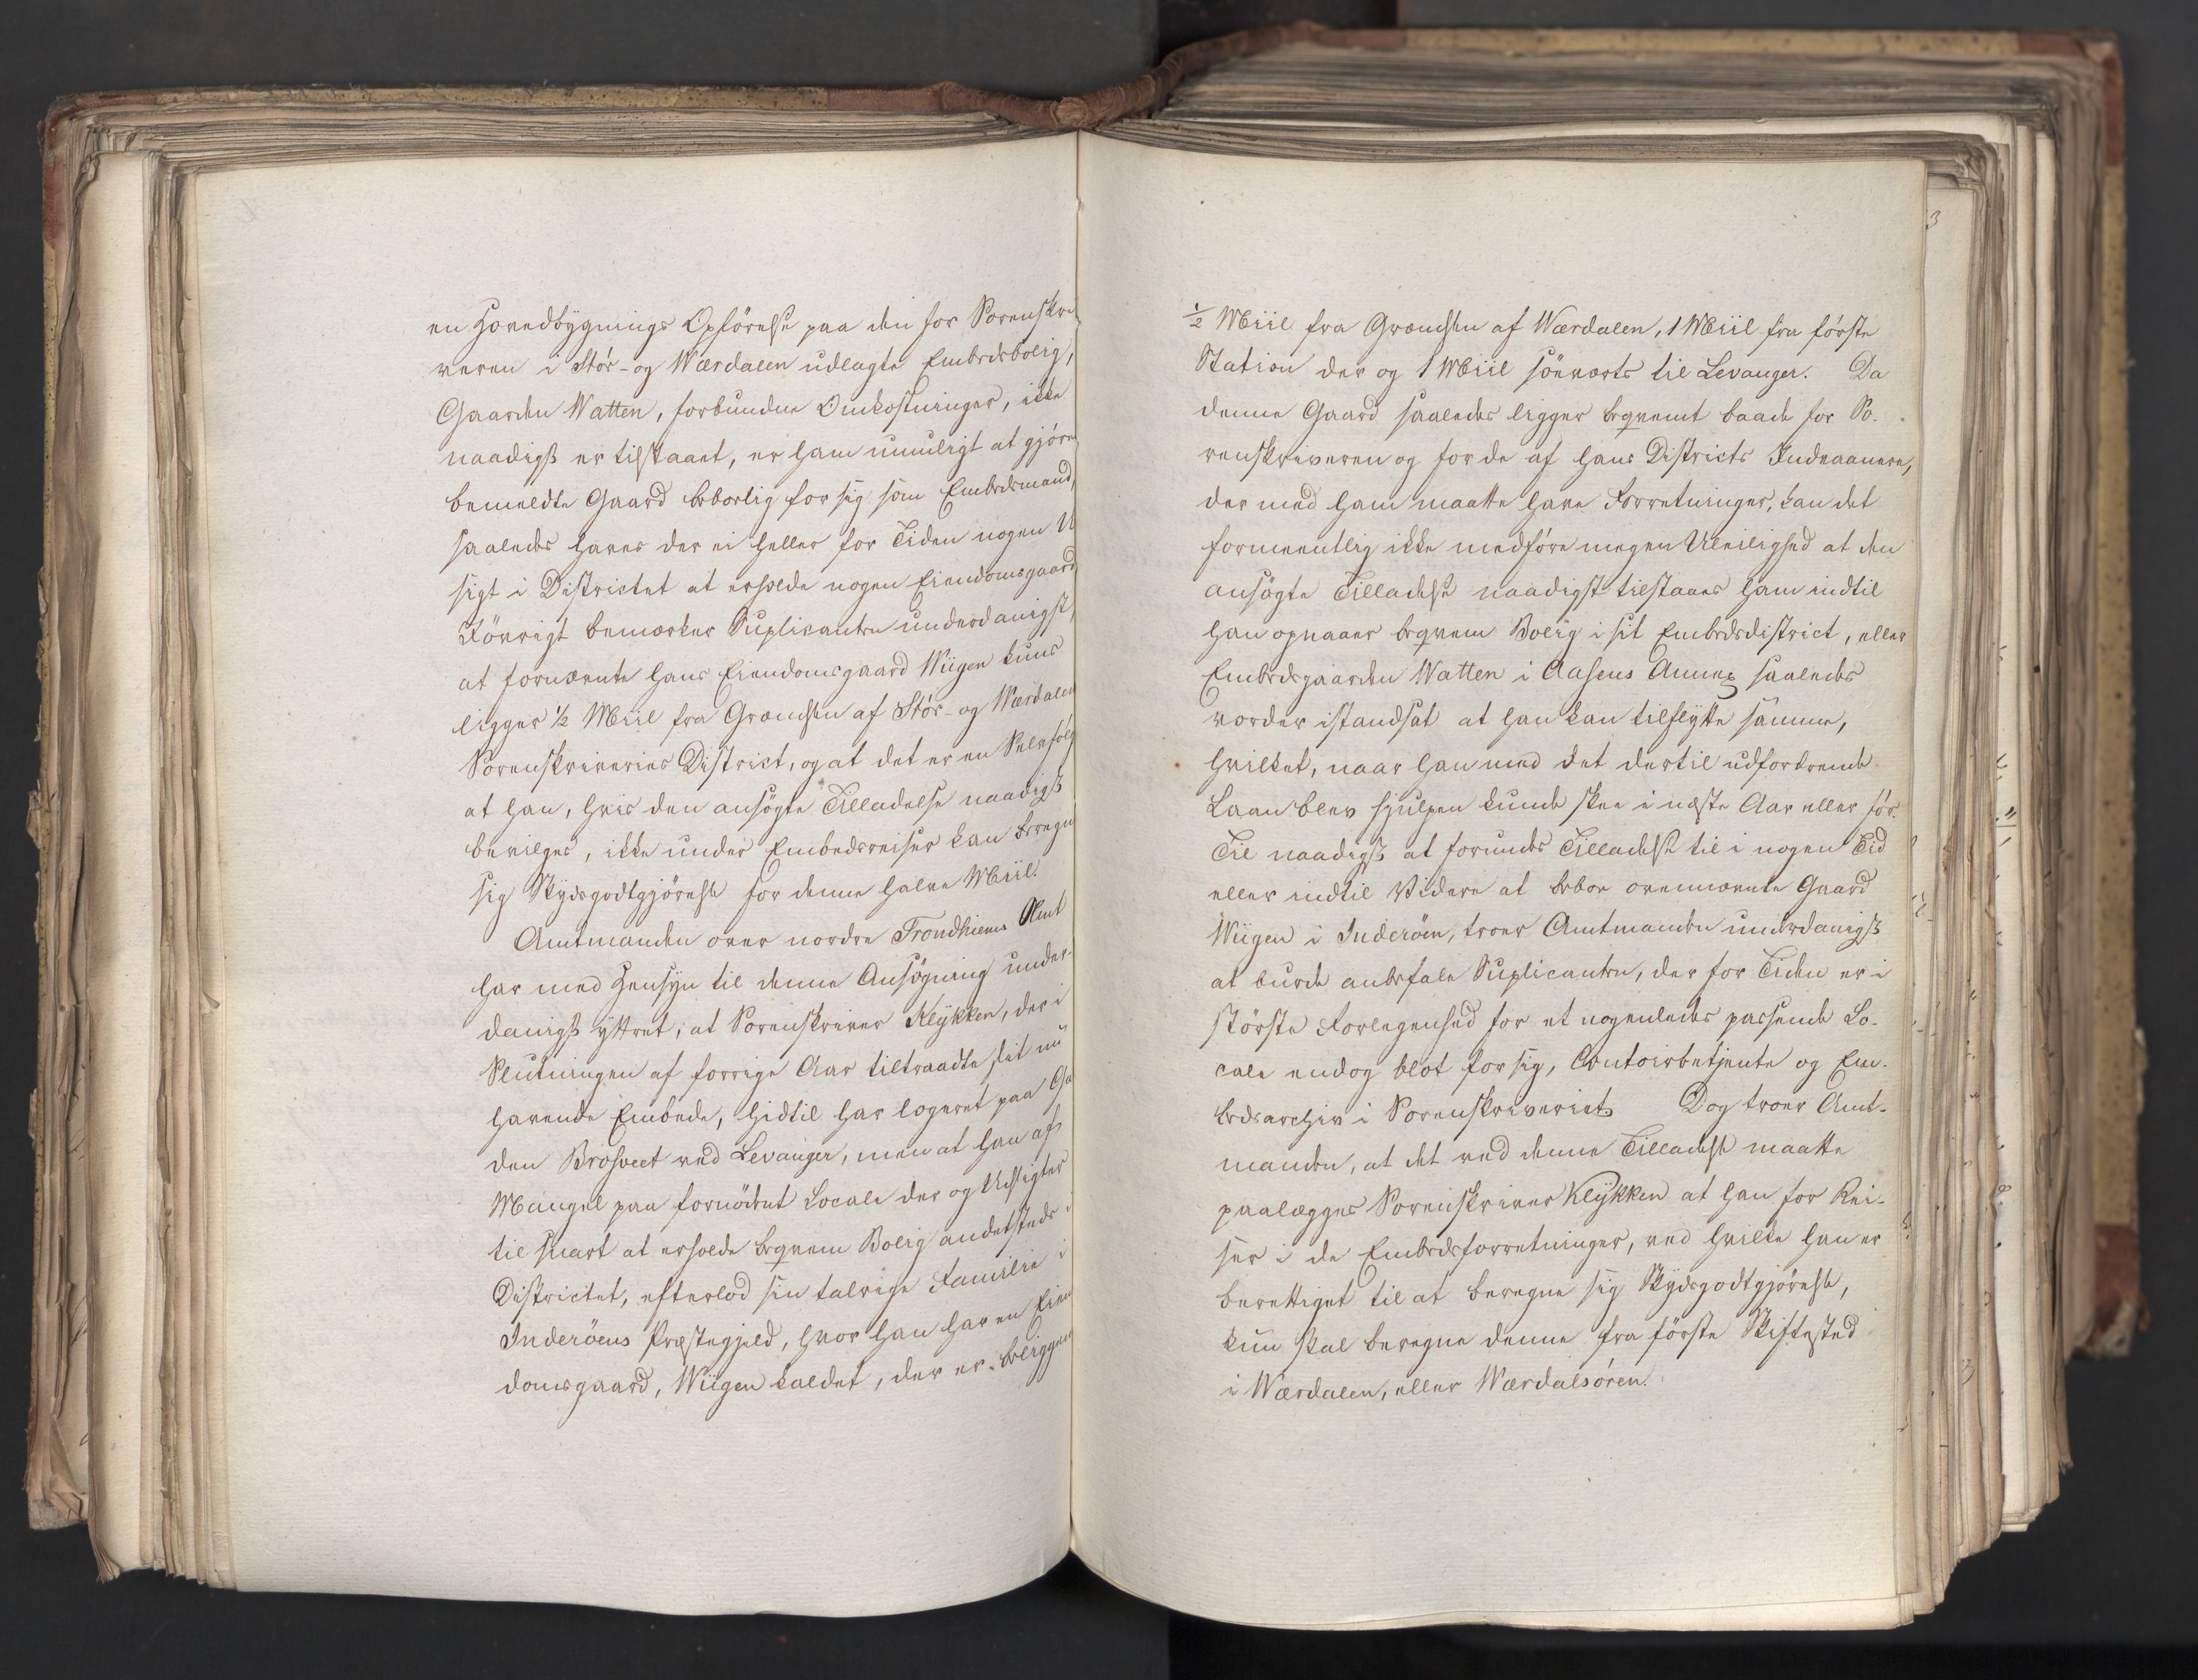 en Hovedbygnings Opförelse paa den for Sorenskri
veren i Stör- og Wærdalen udlagte Embedsbolig,
Gaarden Watten, forbundne Omkostninger, ikke
naadigst er tilstaaet, er ham umuligt at gjöre
bemeldte Gaard beboelig for sig som Embedsmand,
saaledes haves der ei heller for Tiden nogen U
sigt i Districtet at erholde nogen Eiendomsgaard
Iövrigt bemærker Suplicanten underdanigst,
at fornævnte hans Eiendomsgaard Wiigen kuns
ligger ½ Miil fra Grændsen af Stör- og Wærdalen
Sorenskriveries District, og at det er en Selvfölg
at han, hvis den ansögte Tilladelse naadigst
bevilges, ikke under Embedsreiser kan beregne
sig Skydsgodtgjörelse for denne halve Miil.
Amtmanden over nordre Trondhiems Amt
har med Hensyn til denne Ansögning under-
danigst yttret, at Sorenskriver Klykken, der i
Slutningen af forrige Aar tiltraadte sit nu
havende Embede, hidtil har logeret paa Ga
den Brusveet ved Levanger, men at han af
Mangel paa fornödent Locale der og Udsigter
til snart at erholde beqvem Bolig andetsteds i
Districtet, efterlod sin talrige Familie i
Inderöens Præstegjeld, hvor han har en Eien
domsgaard, Wiigen kaldet, der er beliggen
½ Miil fra Grændsen af Wærdalen, 1 Miil fra förste
Station der og 1 Miil söværts til Levanger. Da
denne Gaard saaledes ligger beqvemt baade for So-
renskriveren og for de af hans Districts Indvaanere,
der med ham maatte have Forretninger, kan det
formeentlig ikke medföre megen Uleilighed at den
ansögte Tilladelse naadigst tilstaaes ham indtil
han opnaaer beqvem Bolig i sit Embedsdistrict, eller
Embedsgaarden Watten i Aasens Annex saaledes
vorder istandsat at han kan tilflytte samme,
hvilket, naar han med det dertil udfordrende
Laan blev hjulpen kunde skee i næste Aar eller för.
Til naadigst at forundes Tilladelse til i nogen Tid
eller indtil Videre at beboe ovennævnte Gaard
Wiigen i Inderöen, troer Amtmanden underdanigst
at burde anbefale Suplicanten, der for Tiden er i
störste Forlegenhed for et nogenledes passende Lo-
cale endog blot for sig, Contoirbetjente og Em-
bedsarchiv i Sorenskriveriet. Dog troer Amt-
manden, at det ved denne Tilladelse maatte
paalægges Sorenskriver Klykken at han for Rei-
ser i de Embedsforretninger, ved hvilke han er
berettiget til at beregne sig Skydsgodtgjörelse,
kun skal beregne denne fra förste Skiftested
i Wærdalen, eller Wærdalsören.